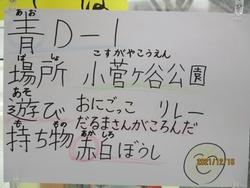 あお
青D-1
ばしょ こすがやこうえん
場所 小菅ケ谷公園
あそ
遊び おにごっこ リレー
だるまさんがころんだ
も もの あかしろ
持ち物 赤白ぼうし
2021/12/16